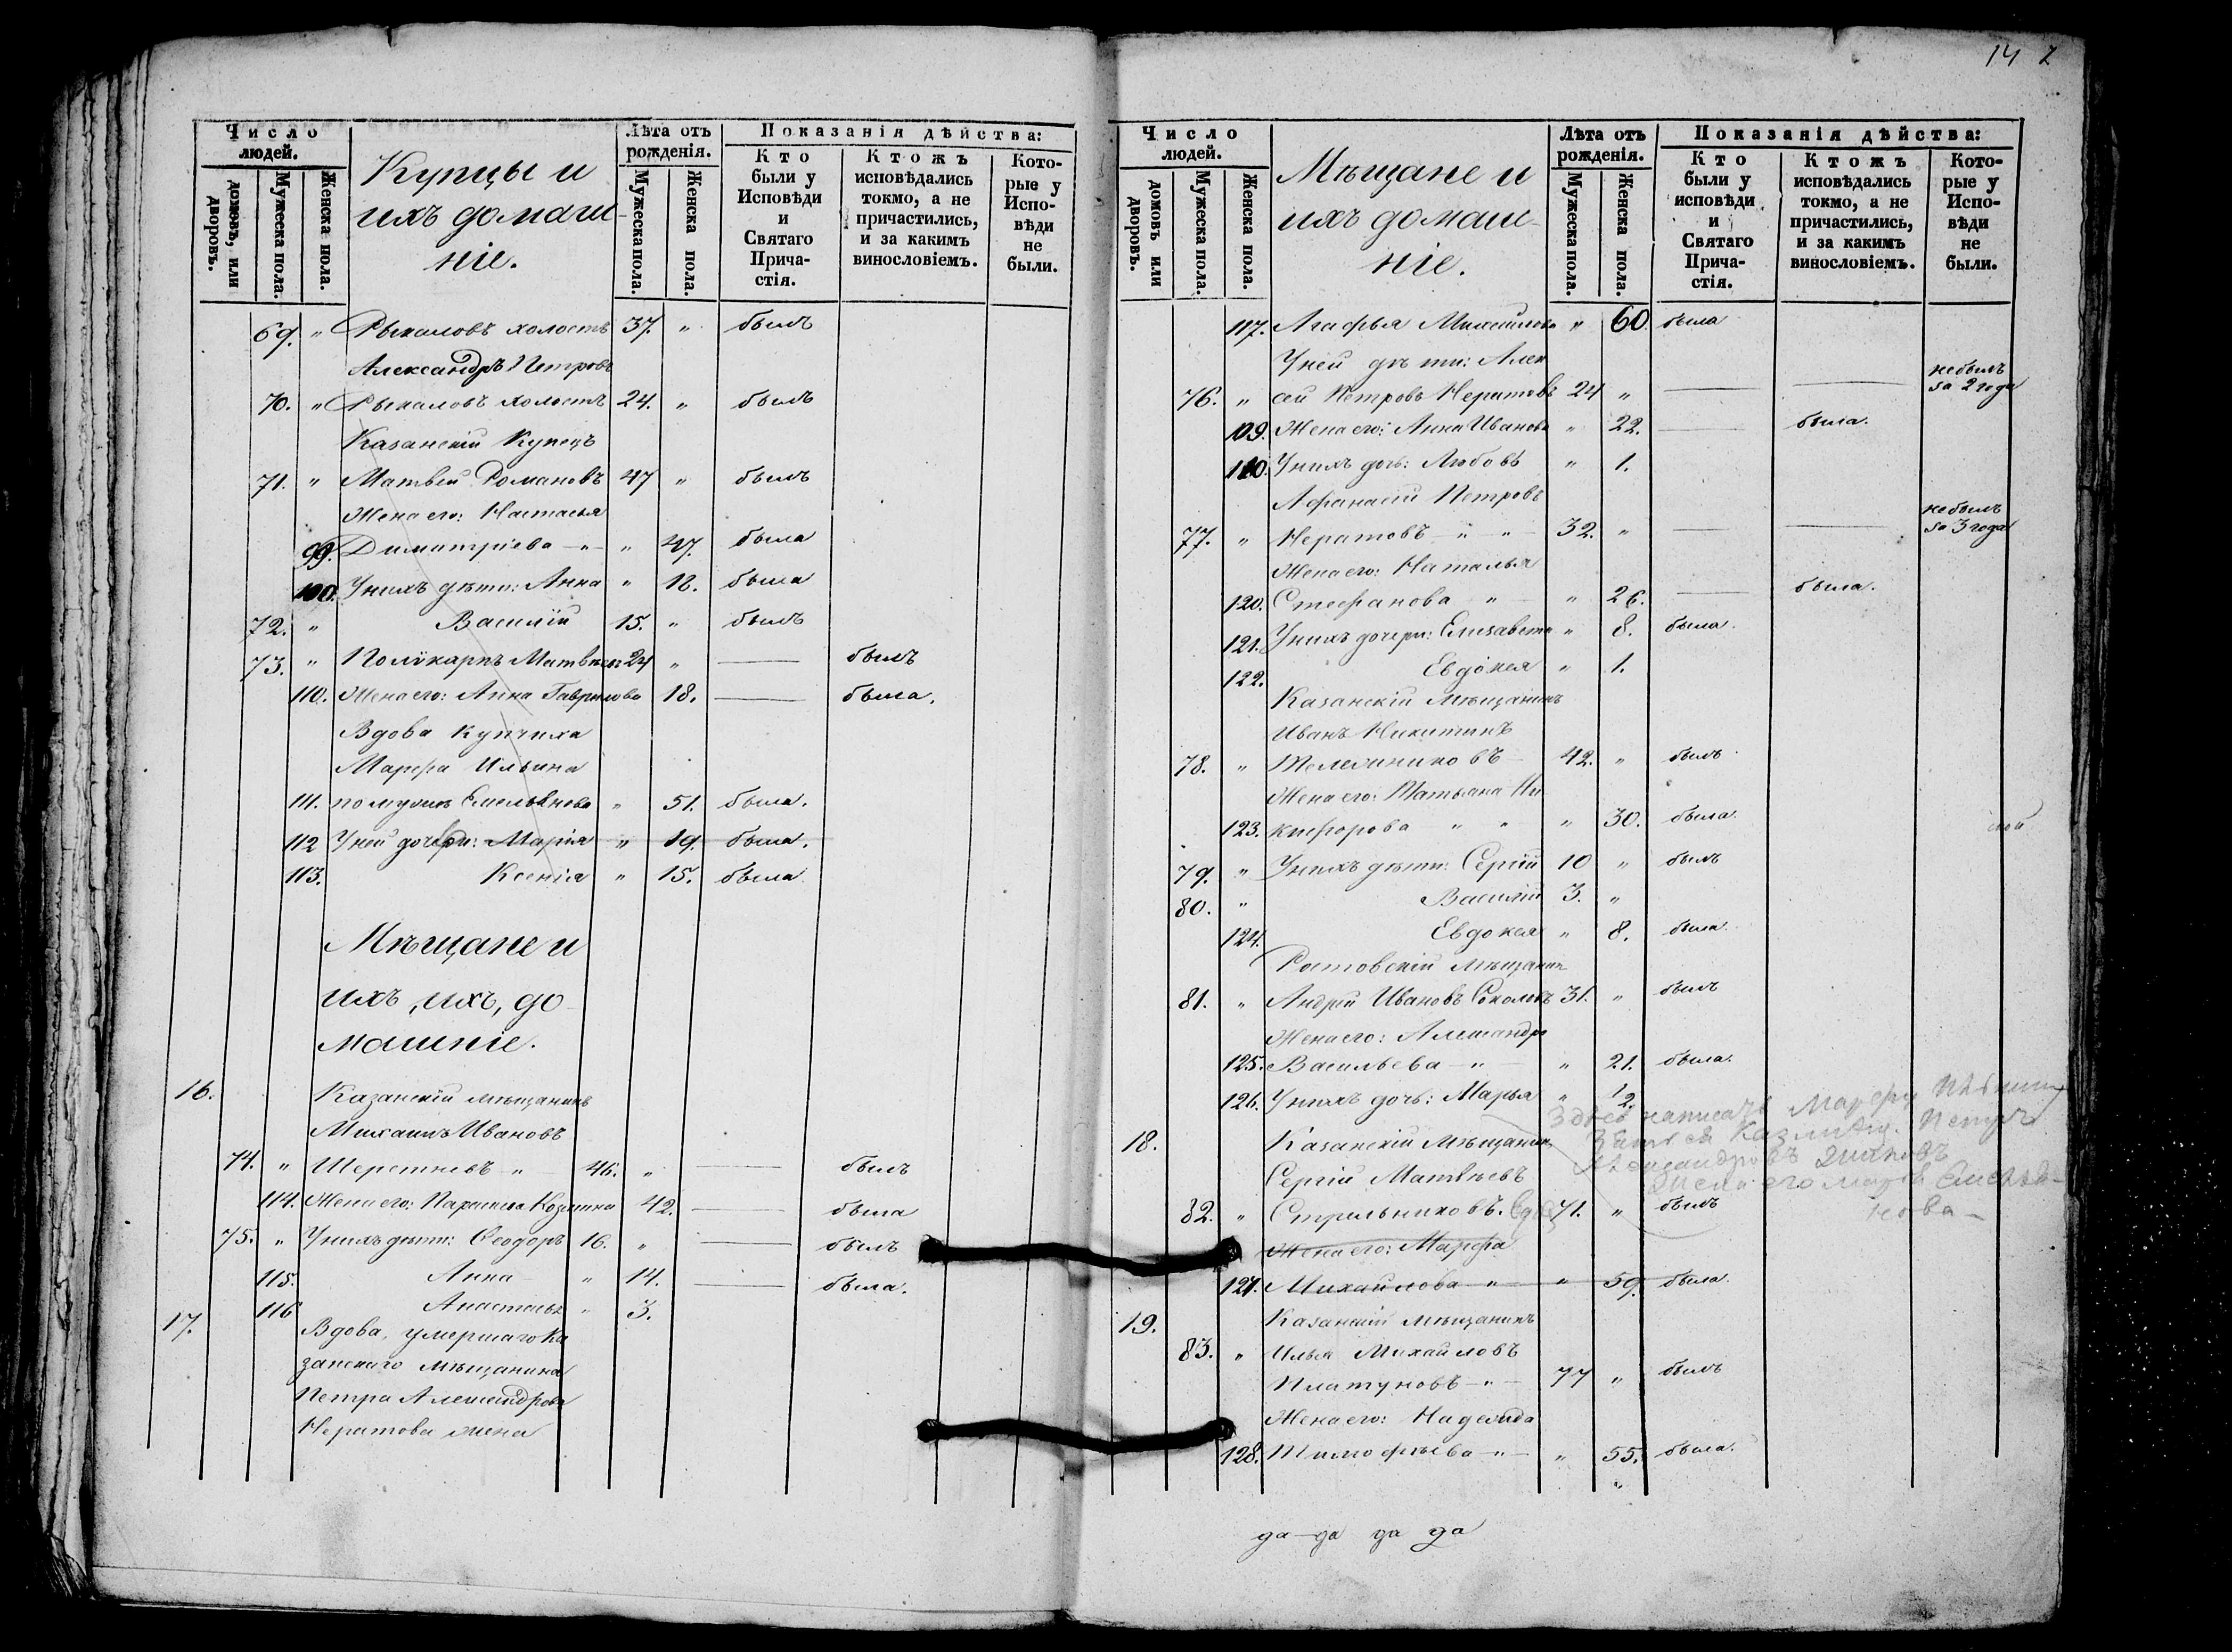 Число людей.
домовъ, или дворовъ.
Мужеска пола.
Женска пола.
Купцы и
ихъ домаш-
ніе.
Лѣта отъ рожденія.
Мужеска пола.
Женска пола.
Показанія дѣйства:
Кто были у Исповѣди и Святаго Прича-стія.
Ктожъ исповѣдались токмо, а не причастились, и за какимъ винословіемъ.
Кото-рые у Испо-вѣди не были.
69. " Рыкаловъ холостъ 37. " былъ
Александръ Петровъ
70. " Рыкаловъ холостъ 24. " былъ
Казанскій Купецъ
71. " Матвей Романовъ 47 " былъ
Жена его: Настасья
99. Димитріева -"- " 47. была
100. Унихъ дѣти: Анна " 18. была
72. " Василій 15. " былъ
73. " Поликарпъ Матвѣевъ 24 " — былъ
110. Жена его: Анна Гаврилова 18. — была.
Вдова Купчиха
Марфа Ильина
111. помужѣ Емельянова " 51. была.
112 Уней дочери: Марія " 19. была.
113. Ксенія " 15. была
Мѣщане и
ихъ, ихъ, до
машніе.
16. Казанскій мѣщанинъ
Михаилъ Ивановъ
74. " Шереметевъ " 46. " — былъ
114. Жена его: Парасковья 42. — была
75. " Унихъ дѣти: Ѳеодоръ 16. " — былъ
115. Анна " 14. — была.
116 Анастасья " 3.
17. Вдова, умершаго Ка
занскаго мѣщанина
Петра Александрова
Нератова жена
14 2
Число людей.
домовъ или дворовъ.
Мужеска пола.
Женска пола.
Мѣщане и
ихъ домаш-
ніе.
Лѣта отъ рожденія.
Мужеска пола.
Женска пола.
Показанія дѣйства:
Кто были у исповѣди и Святаго Прича-стія.
Ктожъ исповѣдались токмо, а не причастились, и за какимъ винословіемъ.
Кото-рые у Испо-вѣди не были.
117. Агафья Михайлова " 60. была
Уней дѣти: Алек
76. " сѣй Петровъ Нератовъ 24 " — — небылъ за 2 года
109. Жена его: Анна Иванова " 22. — была.
110. Унихъ дочь: Любовь " 1.
Афанасій Петровъ
77. " Нератовъ " " 32. " — — небылъ за 3 года
Жена его: Наталья
120. Стефанова " " 26. — была.
121. Унихъ дочери: Елизавета " 8. была.
122. Евдокея " 1.
Казанскій мѣщанинъ
Иванъ Никитинъ
78. " Телегниковъ 42. " былъ
Жена его: Татьяна Ни
123. кифорова " " " 30. была.
79. " Унихъ дѣти: Сергій 10 " былъ
80. " Василій 3. "
124. Евдокея " 8. была.
Ростовскій мѣщанинъ
81. " Андрей Ивановъ Соколовъ 31. " былъ
Жена его: Александра
125. Васильева -"- " 21. была.
126. Унихъ дочь: Марья " ½.
Здѣсь написать Марфу
Петръ
Александровъ
жена его Марія Емелья-
нова
18. Казанскій мѣщанинъ
Сергій Матвѣевъ
82. " Стрѣльниковъ. 71. " былъ
Жена его: Марфа
127. Михайлова " " 59. была.
19. Казанскій мѣщанинъ
83. " Илья Михайловъ
Платуновъ -"- 77 " былъ
Жена его: Надежда
128. Тимофѣева -"- " 55. была.
да-да да да